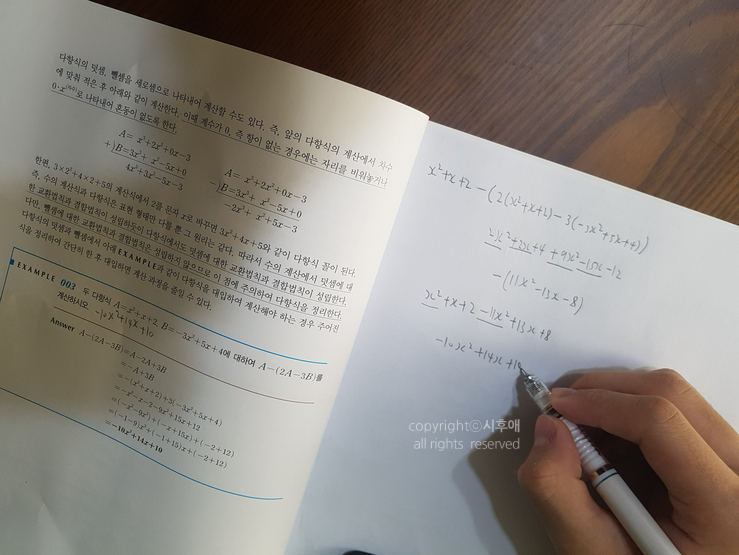 다항식의 덧셈, 뺄셈을 세로셈으로 나타내어 계산할 수도 있다. 즉, 앞의 다항식의 계산에서 차수
에 맞춰 적은 후 아래와 같이 계산한다. 이때 계수가 0, 즉 항이 없는 경우에는 자리를 비워놓거나
0·x^(차수)로 나타내어 혼동이 없도록 한다.
A= x³+2x²+0x-3
+)B=3x³+ x²-5x+0
4x³+3x²-5x-3
A= x³+2x²+0x-3
-)B=3x³+ x²-5x+0
-2x³+ x²+5x-3
한편, 3×2²+4×2+5의 계산식에서 2를 문자 x로 바꾸면 3x²+4x+5와 같이 다항식 꼴이 된다.
즉, 수의 계산식과 다항식은 표현 형태만 다를 뿐 그 원리는 같다. 따라서 수의 계산에서 덧셈에 대
한 교환법칙과 결합법칙이 성립하듯이 다항식에서도 덧셈에 대한 교환법칙과 결합법칙이 성립한다.
다만, 뺄셈에 대한 교환법칙과 결합법칙은 성립하지 않으므로 이 점에 주의하여 다항식을 정리한다.
다항식의 덧셈과 뺄셈에서 아래 EXAMPLE과 같이 다항식을 대입하여 계산해야 하는 경우 주어진
식을 정리하여 간단히 한 후 대입하면 계산 과정을 줄일 수 있다.
EXAMPLE 003 두 다항식 A=x²+x+2, B=-3x²+5x+4에 대하여 A-(2A-3B)를
계산하시오. -10x²+14x+10
Answer A-(2A-3B)=A-2A+3B
=-A+3B
=-(x²+x+2)+3(-3x²+5x+4)
=-x²-x-2-9x²+15x+12
=(-x²-9x²)+(-x+15x)+(-2+12)
=(-1-9)x²+(-1+15)x+(-2+12)
=-10x²+14x+10
x²+x+2-(2(x²+x+2)-3(-3x²+5x+4))
2x²+2x+4+9x²-15x-12
-(11x²-13x-8)
x²+x+2-11x²+13x+8
-10x²+14x+10
copyrightⓒ시후애
all rights reserved